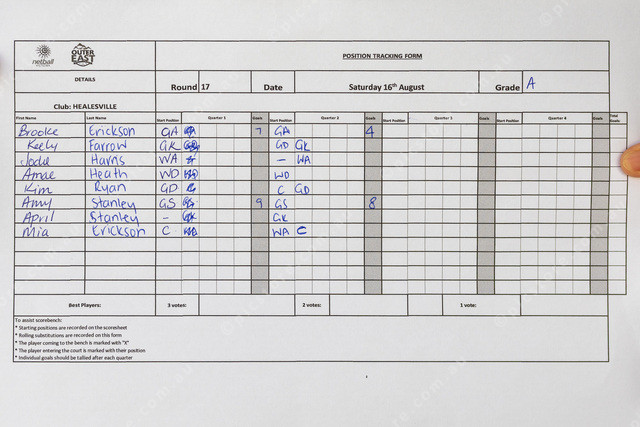 netball
OUTER EAST
POSITION TRACKING FORM
DETAILS Round 17 Date Saturday 16th August Grade A
Club: HEALESVILLE
First Name Last Name Start Position Quarter 1 Goals Start Position Quarter 2 Goals Start Position Quarter 3 Goals Start Position Quarter 4 Goals Total Goals
Brooke Erickson GA 7 GA 4
Keely Farrow GK GD GK
Jodie Harris WA - WA
Amae Heath WD WD
Kim Ryan GD C GD
Amy Stanley GS 9 GS 8
April Stanley - GK
Mia Erickson C WA C
Best Players: 3 votes: 2 votes: 1 vote:
To assist scorebench:
* Starting positions are recorded on the scoresheet
* Rolling substitutions are recorded on this form
* The player coming to the bench is marked with "X"
* The player entering the court is marked with their position
* Individual goals should be tallied after each quarter